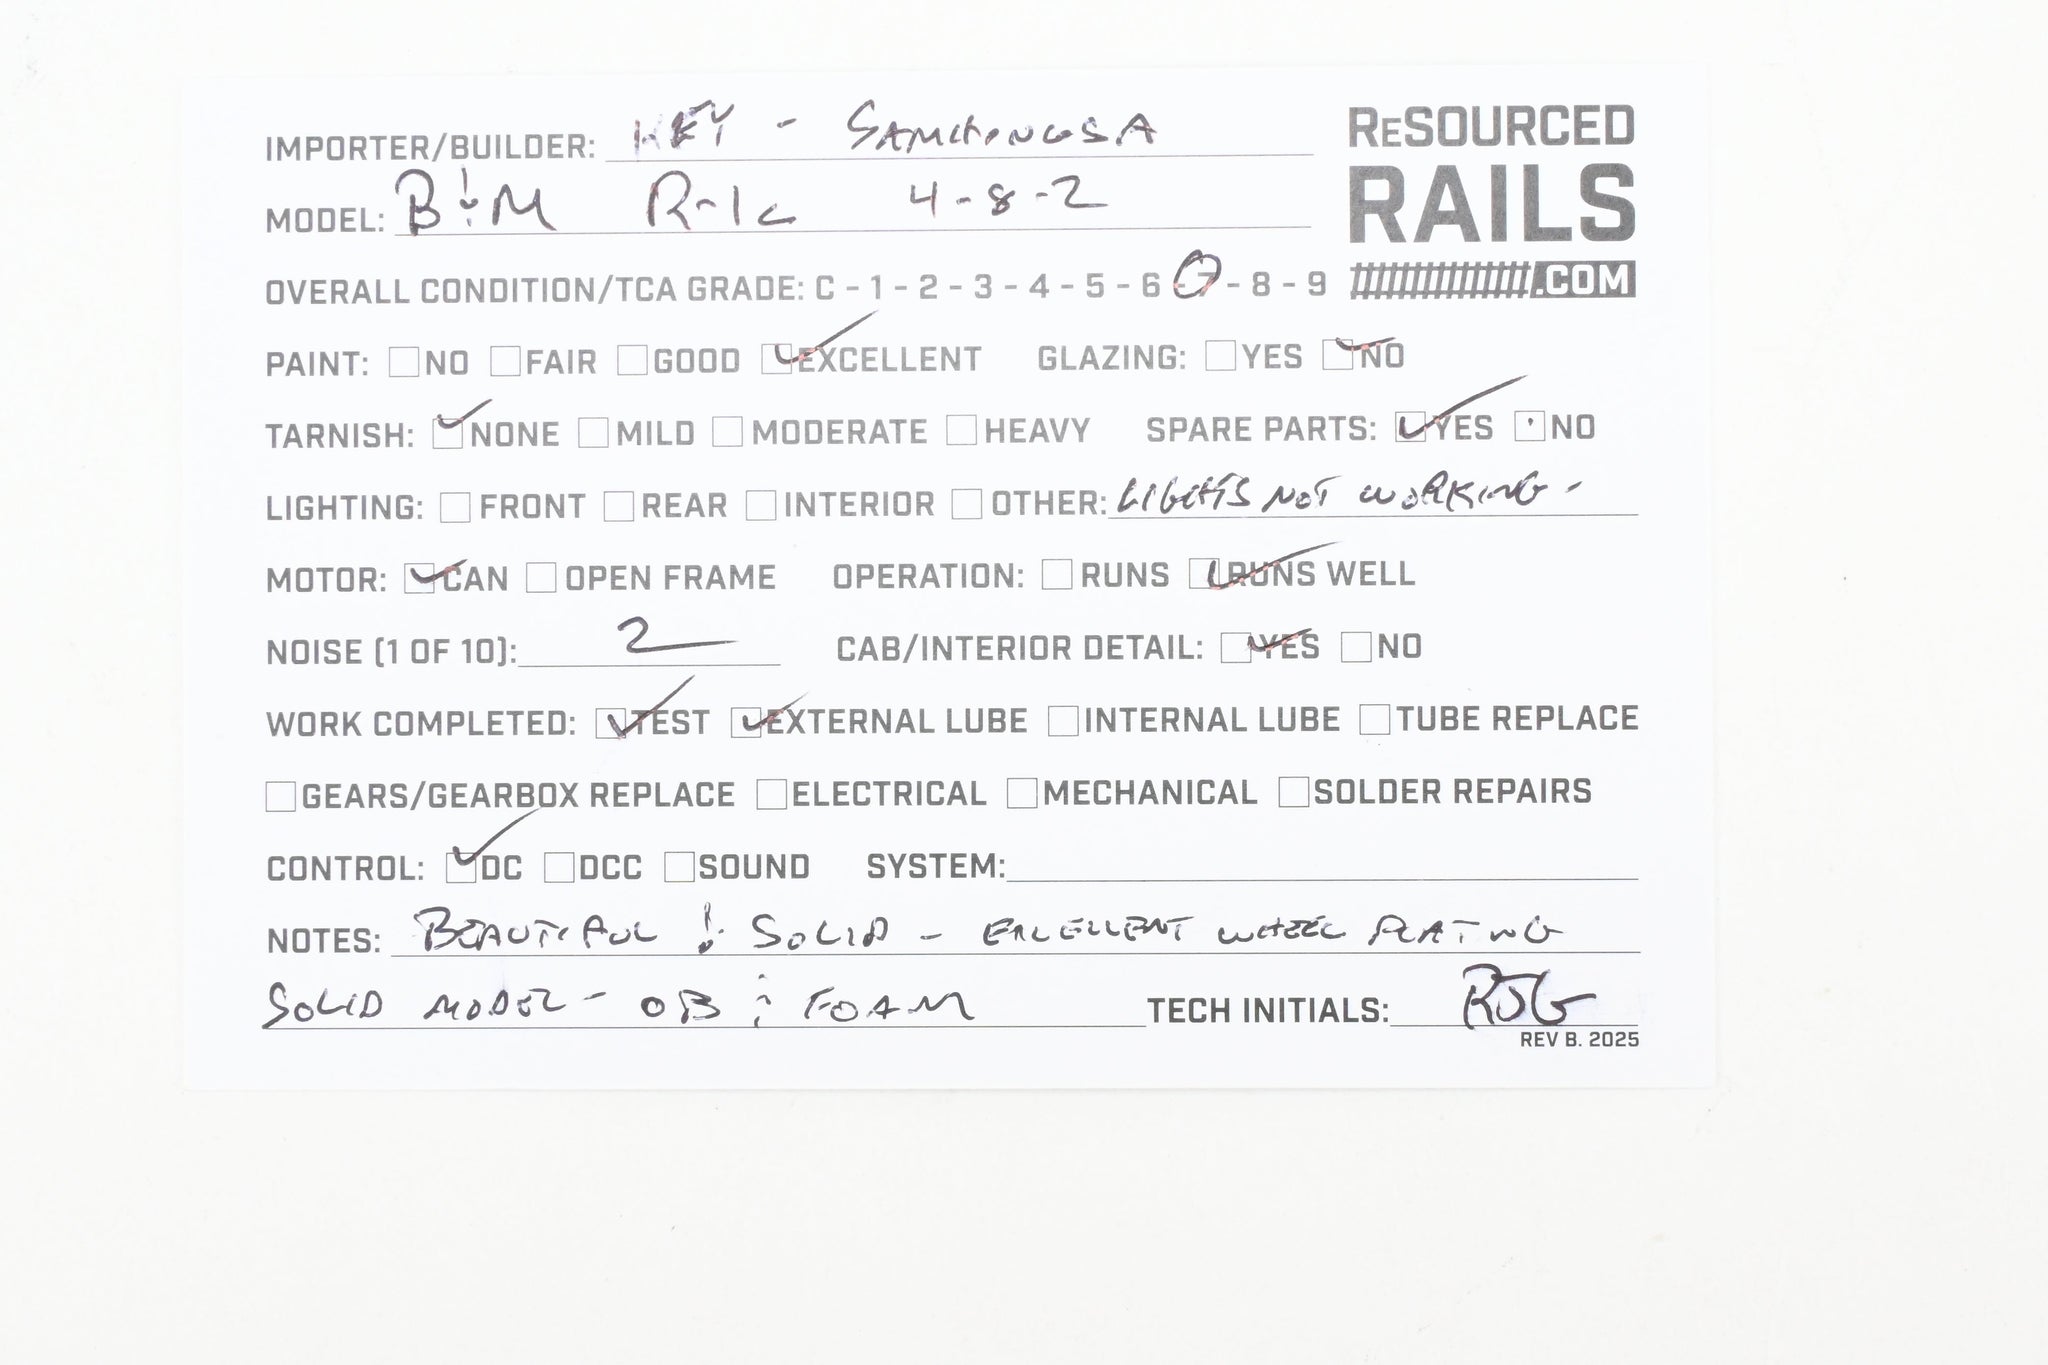 IMPORTER/BUILDER: KEY - SAMHONGSA
ReSOURCED
RAILS
.COM
MODEL: B & M R-1c 4-8-2
OVERALL CONDITION/TCA GRADE: C - 1 - 2 - 3 - 4 - 5 - 6 - 7 - 8 - 9
PAINT: NO FAIR GOOD EXCELLENT GLAZING: YES NO
TARNISH: NONE MILD MODERATE HEAVY SPARE PARTS: YES NO
LIGHTING: FRONT REAR INTERIOR OTHER: LIGHTS NOT WORKING -
MOTOR: CAN OPEN FRAME OPERATION: RUNS RUNS WELL
NOISE (1 OF 10): 2 CAB/INTERIOR DETAIL: YES NO
WORK COMPLETED: TEST EXTERNAL LUBE INTERNAL LUBE TUBE REPLACE
GEARS/GEARBOX REPLACE ELECTRICAL MECHANICAL SOLDER REPAIRS
CONTROL: DC DCC SOUND SYSTEM:
NOTES: BEAUTIFUL & SOLID - EXCELLENT WHEEL PLATING
SOLID MODEL - OB & FOAM TECH INITIALS: RJG
REV B. 2025